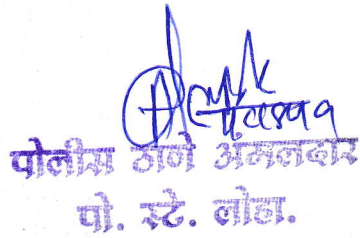 पोलीस ठाणे अमलदार
पो. स्टे. लोहा.